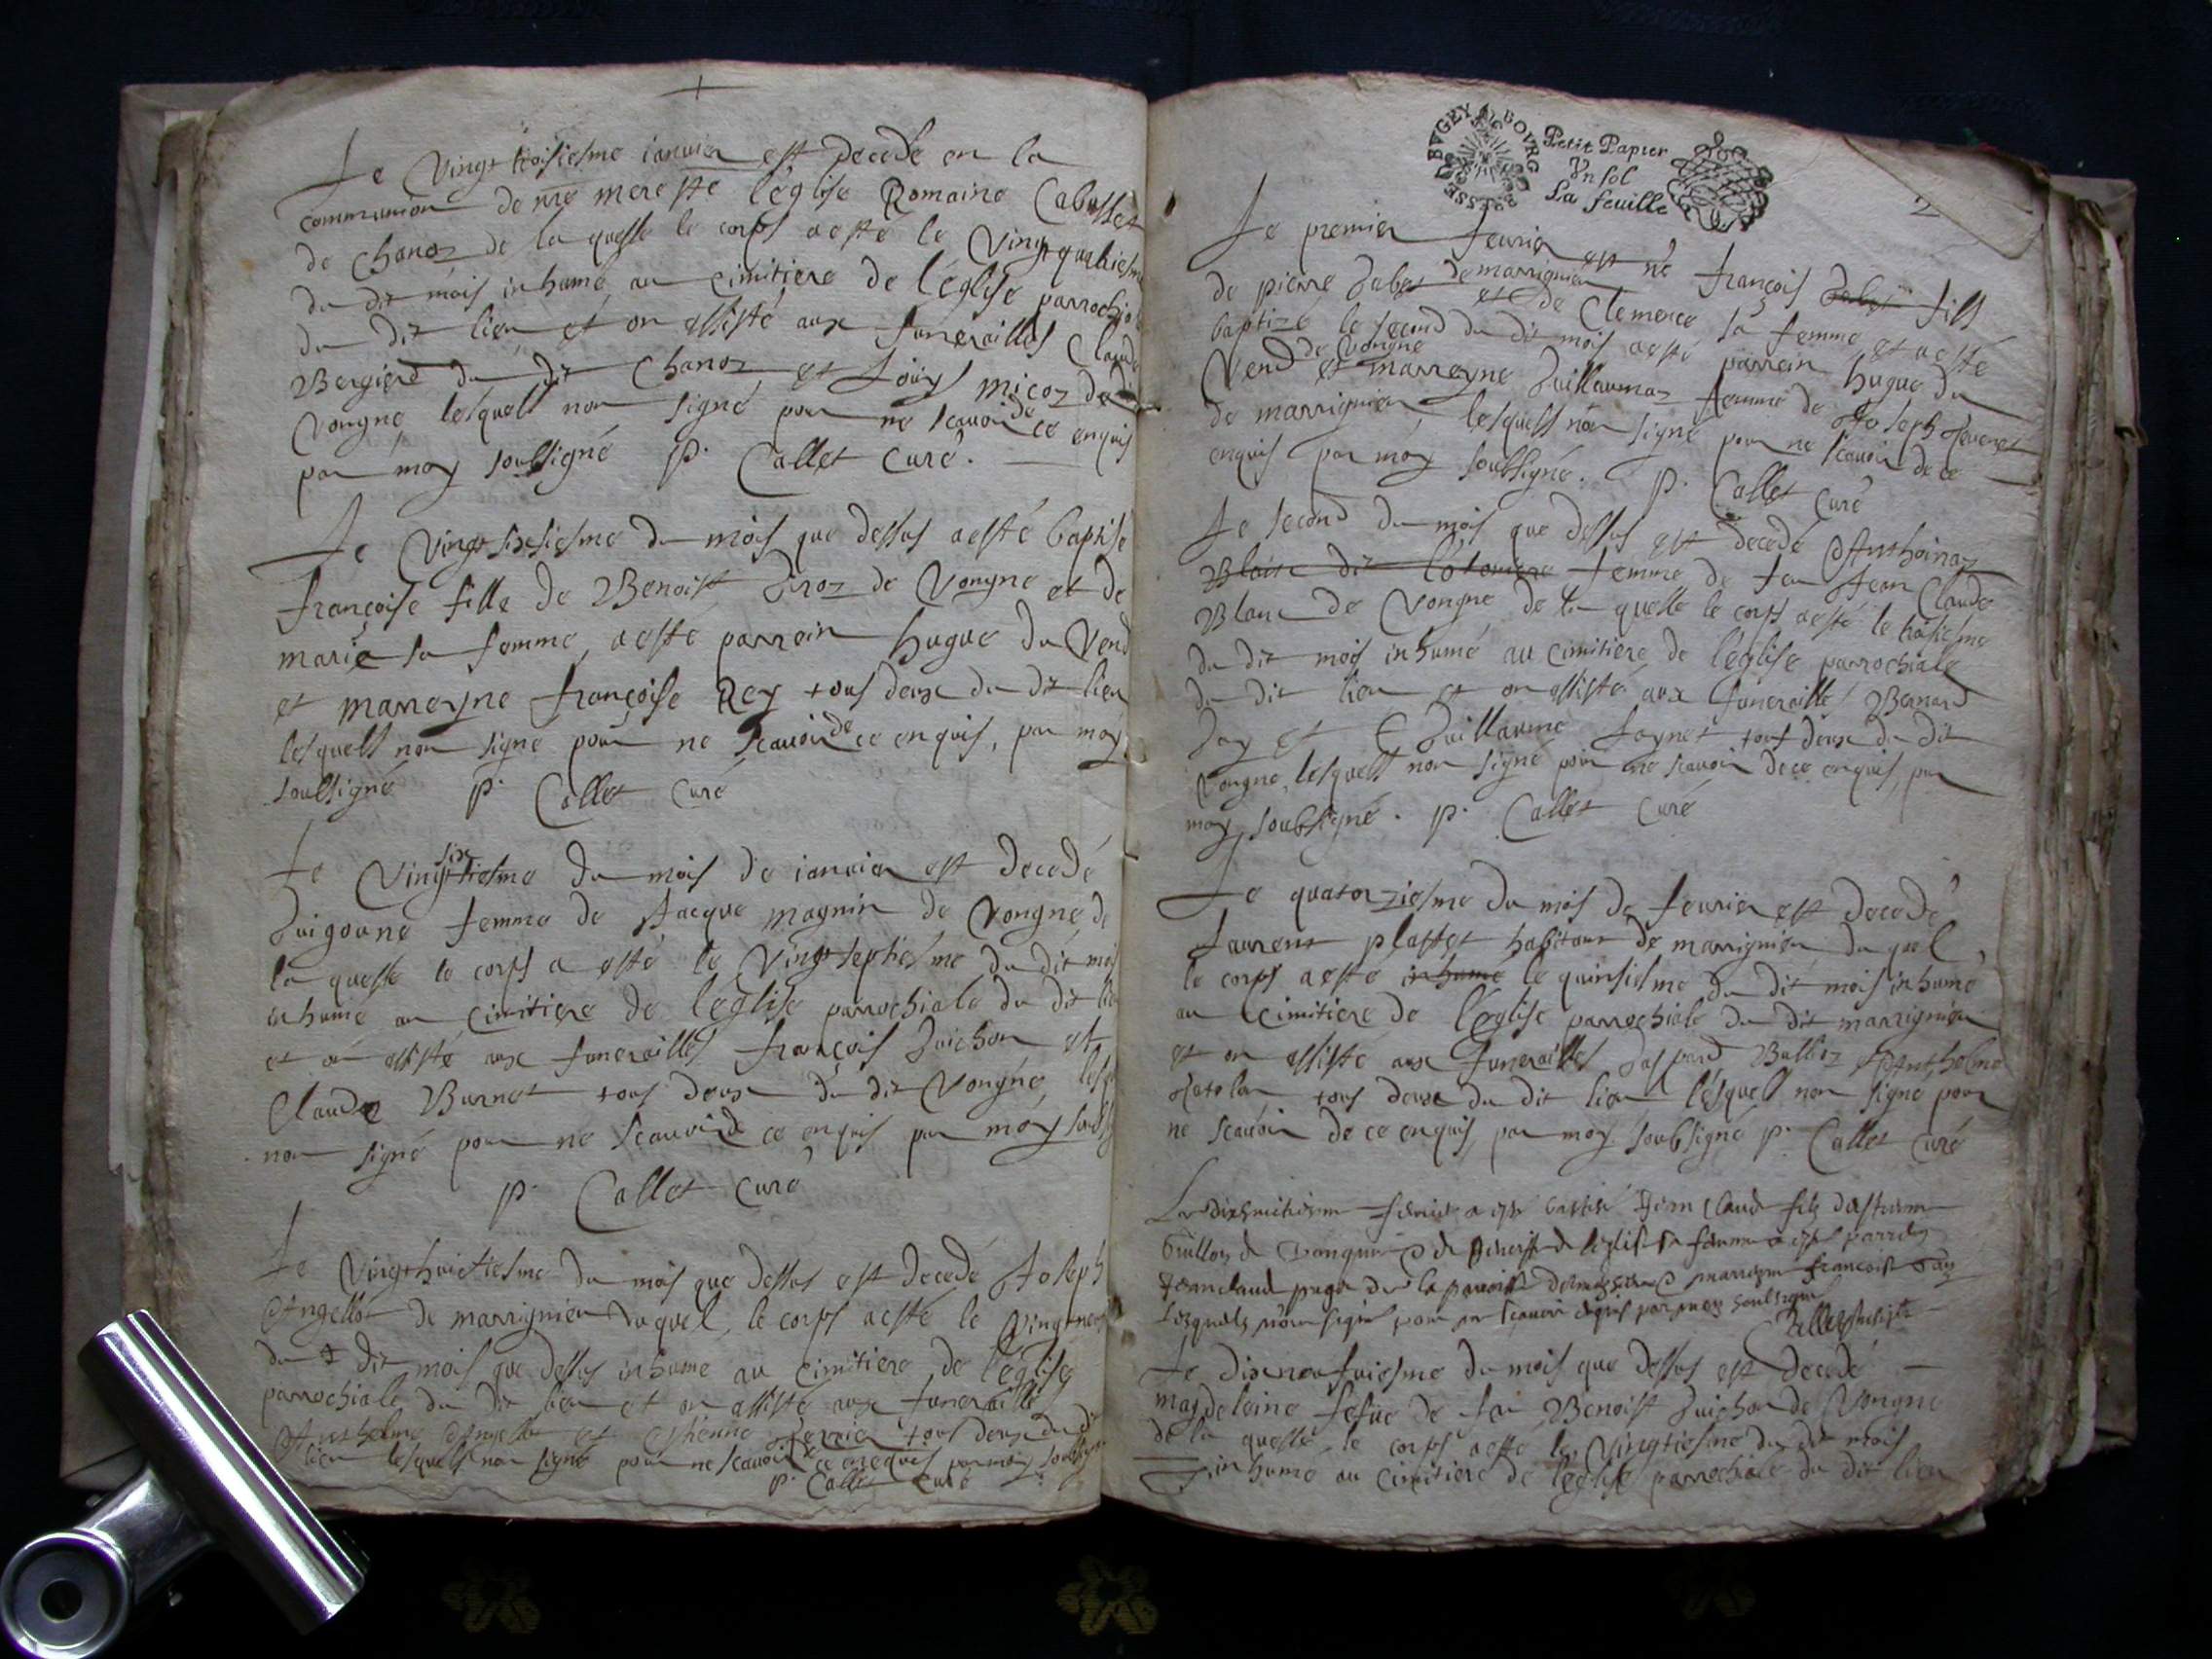 Le Vingt troisiesme ianvier est decedé en la
communion de nre mere ste l'église Romaine
de Chanoz de la quelle le corps aesté le Vingtquatriesme
du dit mois inhumé au cimitiere de l'église parrochiale
du dit lieu et on assisté aux funerailles Claude
Bergiere du dit Chanoz et Louys micoz du dit
Vongne, lesquels non signé pour ne scavoir de ce enquis
par moy soubsigné p. Callet Curé.
Le Vingt sixiesme du mois que dessus aesté baptisé
françoise fille de Benoist Giroz de Vongne et de
marie sa femme, aesté parrein hugue du Vend
et marreyne françoise Rey tous deux du dit lieu
lesquels non signé pour ne scavoir de ce enquis, par moy
soubsigné p. Callet Curé
Le Vingt sixiesme du mois de ianvier est decedé
Guigonne femme de Jacque magnin de Vongne, de
la quelle le corps a esté le Vingt septiesme du dit mois
inhumé au cimitiere de l'église parrochiale du dit lieu
et on assisté aux funerailles françois Guichon et
Claude Burnet tous deux du dit Vongne,
non signé pour ne scavoir de ce enquis par moy
p. Callet Curé
Le Vingt huictiesme du mois que dessus est decedé Joseph
Angellot de marrignieu duquel, le corps aesté le
du dit mois que dessus inhumé au cimitiere de l'église
parrochiale du dit lieu et on assisté aux funeraille
Anthelme et Estienne tous deux du dit
lieu lesquels non signé pour ne scavoir de ce enquis par moy
p. Callet Curé
BUGEY BOURG BRESSE
Petit Papier
Vn sol
La feuille
2
Le premier feurier est né françois fils
de pierre de marrignieu et de Clemence sa femme, et aesté
baptizé le second du dit mois aesté parrein hugue du
Vend de Vongne et marreyne Guillaumaz femme de Joseph
de marrignieu, lesquels non signé pour ne scavoir de ce
enquis par moy soubsigné. p. Callet Curé
Le second du mois que dessus est decedé Anthoinaz
femme de feu Jean Claude
Blanc de Vongne, de la quelle le corps aesté le troisiesme
du dit mois inhumé au cimitiere de l'église parrochiale
du dit lieu et on assisté aux funeraille Bernard
Gay et Guillaume tous deux du dit
Vongne, lesquels non signé pour ne scavoir de ce enquis, par
moy soubsigné. p. Callet Curé
Le quatorziesme du mois de feurier est decedé
Laurent plattet habitant de marrignieu, du quel
le corps aesté inhumé le quinsiesme du dit mois inhumé
au cimitiere de l'église parrochiale du dit marrignieu
et on assisté aux funerailles Gaspard et Anthelme
tous deux du dit lieu lesquels non signé pour
ne scavoir de ce enquis, par moy soubsigné p. Callet Curé
Le dixhuitiesme feurier a esté Jean Claude fils
de de l'église sa femme a esté
Jean claude de la marreyne françoise
lesquels n'ont signé pour ne scavoir enquis par moy soubsigné
Le dixneufuiesme du mois que dessus est decedé
magdeleine fefue de feu Benoist Guichon de Vongne
de la quelle, le corps aesté le Vingtiesme du dit mois
inhumé au cimitiere de l'église parrochiale du dit lieu